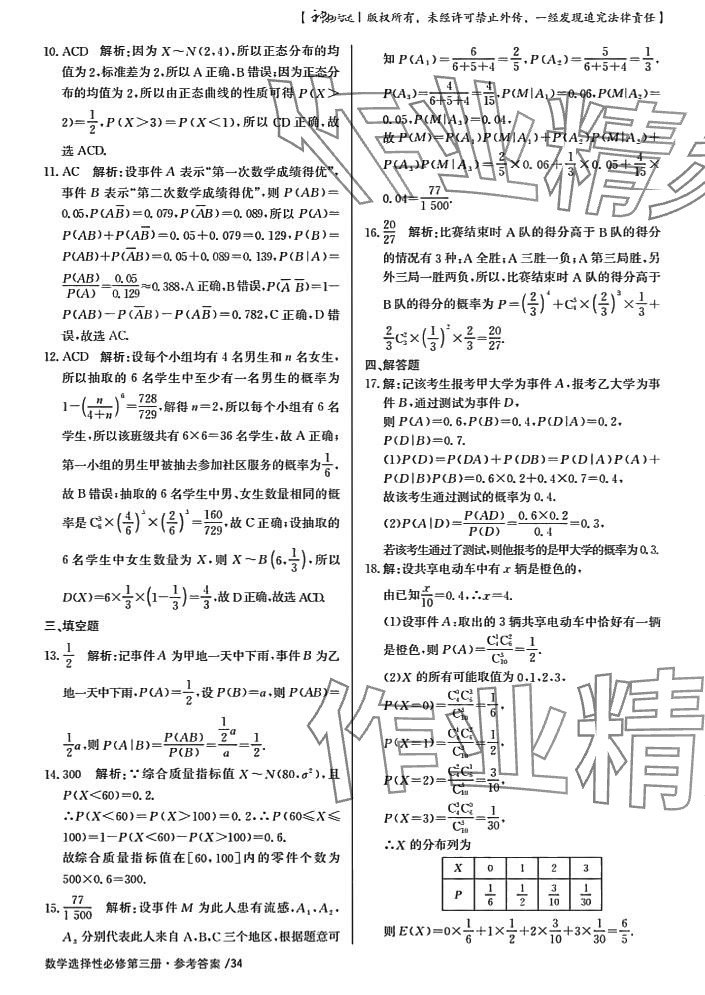 【 | 版权所有，未经许可禁止外传，一经发现追究法律责任】
10. ACD 解析:因为 X～N(2,4),所以正态分布的均
值为2,标准差为2,所以A正确,B错误;因为正态分
布的均值为2,所以由正态曲线的性质可得 P(X>
2)=1/2,P(X>3)=P(X<1),所以CD正确,故
选ACD.
11. AC 解析:设事件A表示“第一次数学成绩得优”,
事件B表示“第二次数学成绩得优”,则P(AB)=
0.05,P(AB̅)=0.079,P(A̅B)=0.089,所以P(A)=
P(AB)+P(AB̅)=0.05+0.079=0.129,P(B)=
P(AB)+P(A̅B)=0.05+0.089=0.139,P(B|A)=
P(AB)/P(A)=0.05/0.129≈0.388,A正确,B错误,P(A̅ B̅)=1-
P(AB)-P(A̅B)-P(AB̅)=0.782,C正确,D错
误,故选AC.
12. ACD 解析:设每个小组均有4名男生和n名女生,
所以抽取的6名学生中至少有一名男生的概率为
1-(n/(4+n))^6=728/729,解得n=2,所以每个小组有6名
学生,所以该班级共有6×6=36名学生,故A正确;
第一小组的男生甲被抽去参加社区服务的概率为1/6,
故B错误;抽取的6名学生中男、女生数量相同的概
率是C₆³×(4/6)³×(2/6)³=160/729,故C正确;设抽取的
6名学生中女生数量为X,则X～B(6,1/3),所以
D(X)=6×1/3×(1-1/3)=4/3,故D正确,故选ACD.
三、填空题
13. 1/2 解析:记事件A为甲地一天中下雨,事件B为乙
地一天中下雨,P(A)=1/2,设P(B)=a,则P(AB)=
1/2a,则P(A|B)=P(AB)/P(B)=(1/2a)/a=1/2.
14. 300 解析:∵综合质量指标值X～N(80,σ²),且
P(X<60)=0.2.
∴P(X<60)=P(X>100)=0.2,∴P(60≤X≤
100)=1-P(X<60)-P(X>100)=0.6.
故综合质量指标值在[60,100]内的零件个数为
500×0.6=300.
15. 77/1 500 解析:设事件M为此人患有流感,A₁,A₂,
A₃分别代表此人来自A,B,C三个地区,根据题意可
知P(A₁)=6/(6+5+4)=2/5,P(A₂)=5/(6+5+4)=1/3,
P(A₃)=4/(6+5+4)=4/15,P(M|A₁)=0.06,P(M|A₂)=
0.05,P(M|A₃)=0.04,
故P(M)=P(A₁)P(M|A₁)+P(A₂)P(M|A₂)+
P(A₃)P(M|A₃)=2/5×0.06+1/3×0.05+4/15×
0.04=77/1 500.
16. 20/27 解析:比赛结束时A队的得分高于B队的得分
的情况有3种:A全胜;A三胜一负;A第三局胜,另
外三局一胜两负,所以,比赛结束时A队的得分高于
B队的得分的概率为P=(2/3)^4+C₄¹×(2/3)³×1/3+
2/3C₃²×(1/3)²×2/3=20/27.
四、解答题
17. 解:记该考生报考甲大学为事件A,报考乙大学为事
件B,通过测试为事件D,
则P(A)=0.6,P(B)=0.4,P(D|A)=0.2,
P(D|B)=0.7.
(1)P(D)=P(DA)+P(DB)=P(D|A)P(A)+
P(D|B)P(B)=0.6×0.2+0.4×0.7=0.4,
故该考生通过测试的概率为0.4.
(2)P(A|D)=P(AD)/P(D)=0.6×0.2/0.4=0.3,
若该考生通过了测试,则他报考的是甲大学的概率为0.3.
18. 解:设共享电动车中有x辆是橙色的,
由已知x/10=0.4,∴x=4.
(1)设事件A:取出的3辆共享电动车中恰好有一辆
是橙色,则P(A)=C₄¹C₆²/C₁₀³=1/2.
(2)X的所有可能取值为0,1,2,3,
P(X=0)=C₄⁰C₆³/C₁₀³=1/6,
P(X=1)=C₄¹C₆²/C₁₀³=1/2,
P(X=2)=C₄²C₆¹/C₁₀³=3/10,
P(X=3)=C₄³C₆⁰/C₁₀³=1/30,
∴X的分布列为
X 0 1 2 3
P 1/6 1/2 3/10 1/30
则E(X)=0×1/6+1×1/2+2×3/10+3×1/30=6/5.
数学选择性必修第三册·参考答案/34
作业精灵
作业精灵